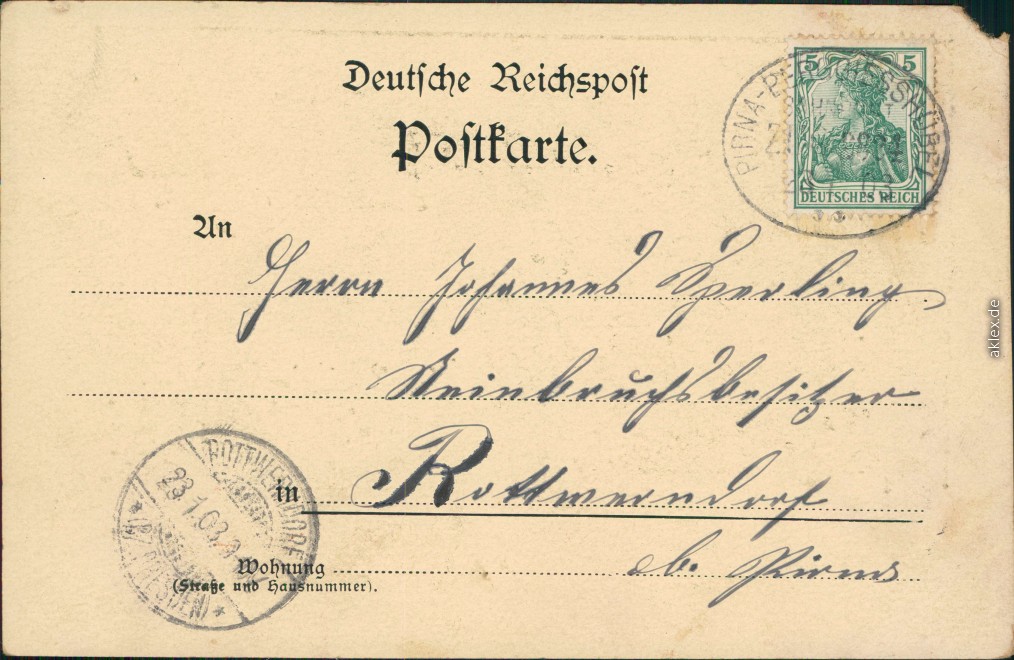 Deutsche Reichspost
Postkarte.
5 5
DEUTSCHES REICH
PIRNA-
03
An
Herrn Johannes Sperling
Steinbruchsbesitzer
in Rottwerndorf
Wohnung b. Pirna
(Straße und Hausnummer).
ROTTWERNDORF
23.1.03.
aklex.de